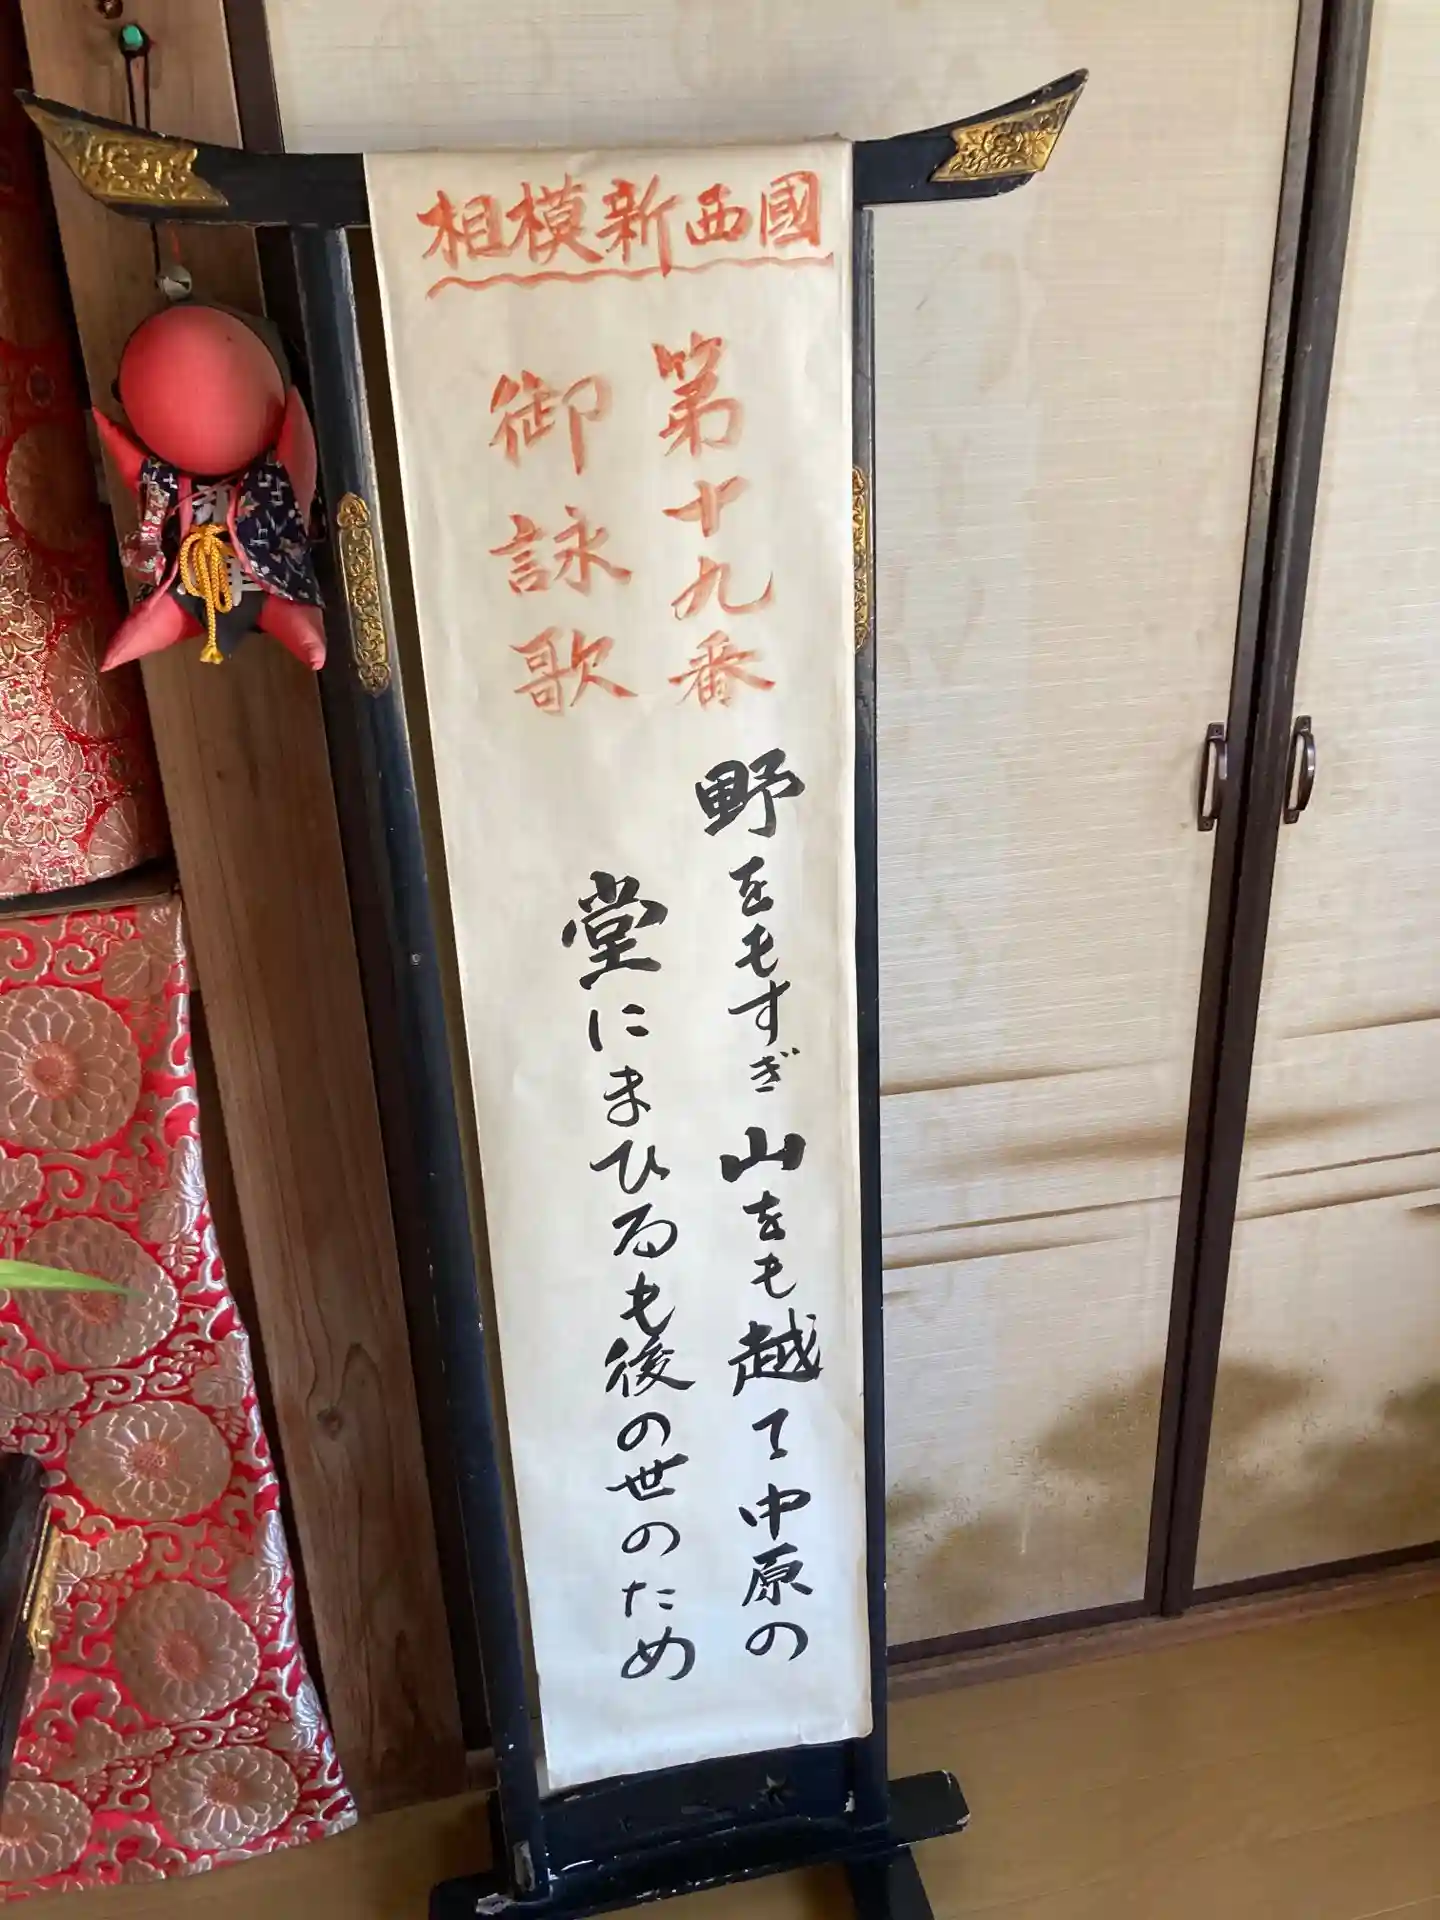 相模新西國
第十九番
御詠歌
野をもすぎ山をも越て中原の
堂にまひるも後の世のため